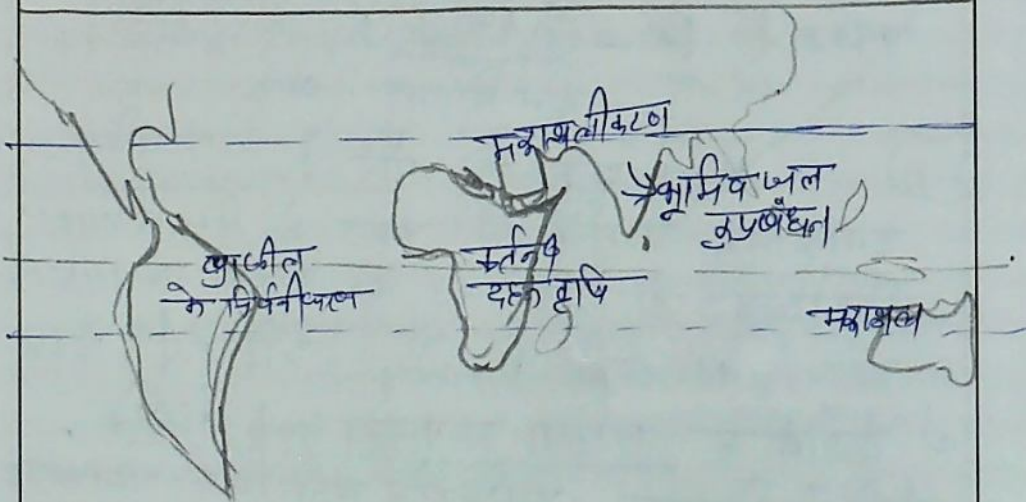 मरूस्थलीकरण
भूमि व जल
कुप्रबंधन
ब्राजील
के निर्वनीकरण
कर्तन व
दहन कृषि
मरूस्थल